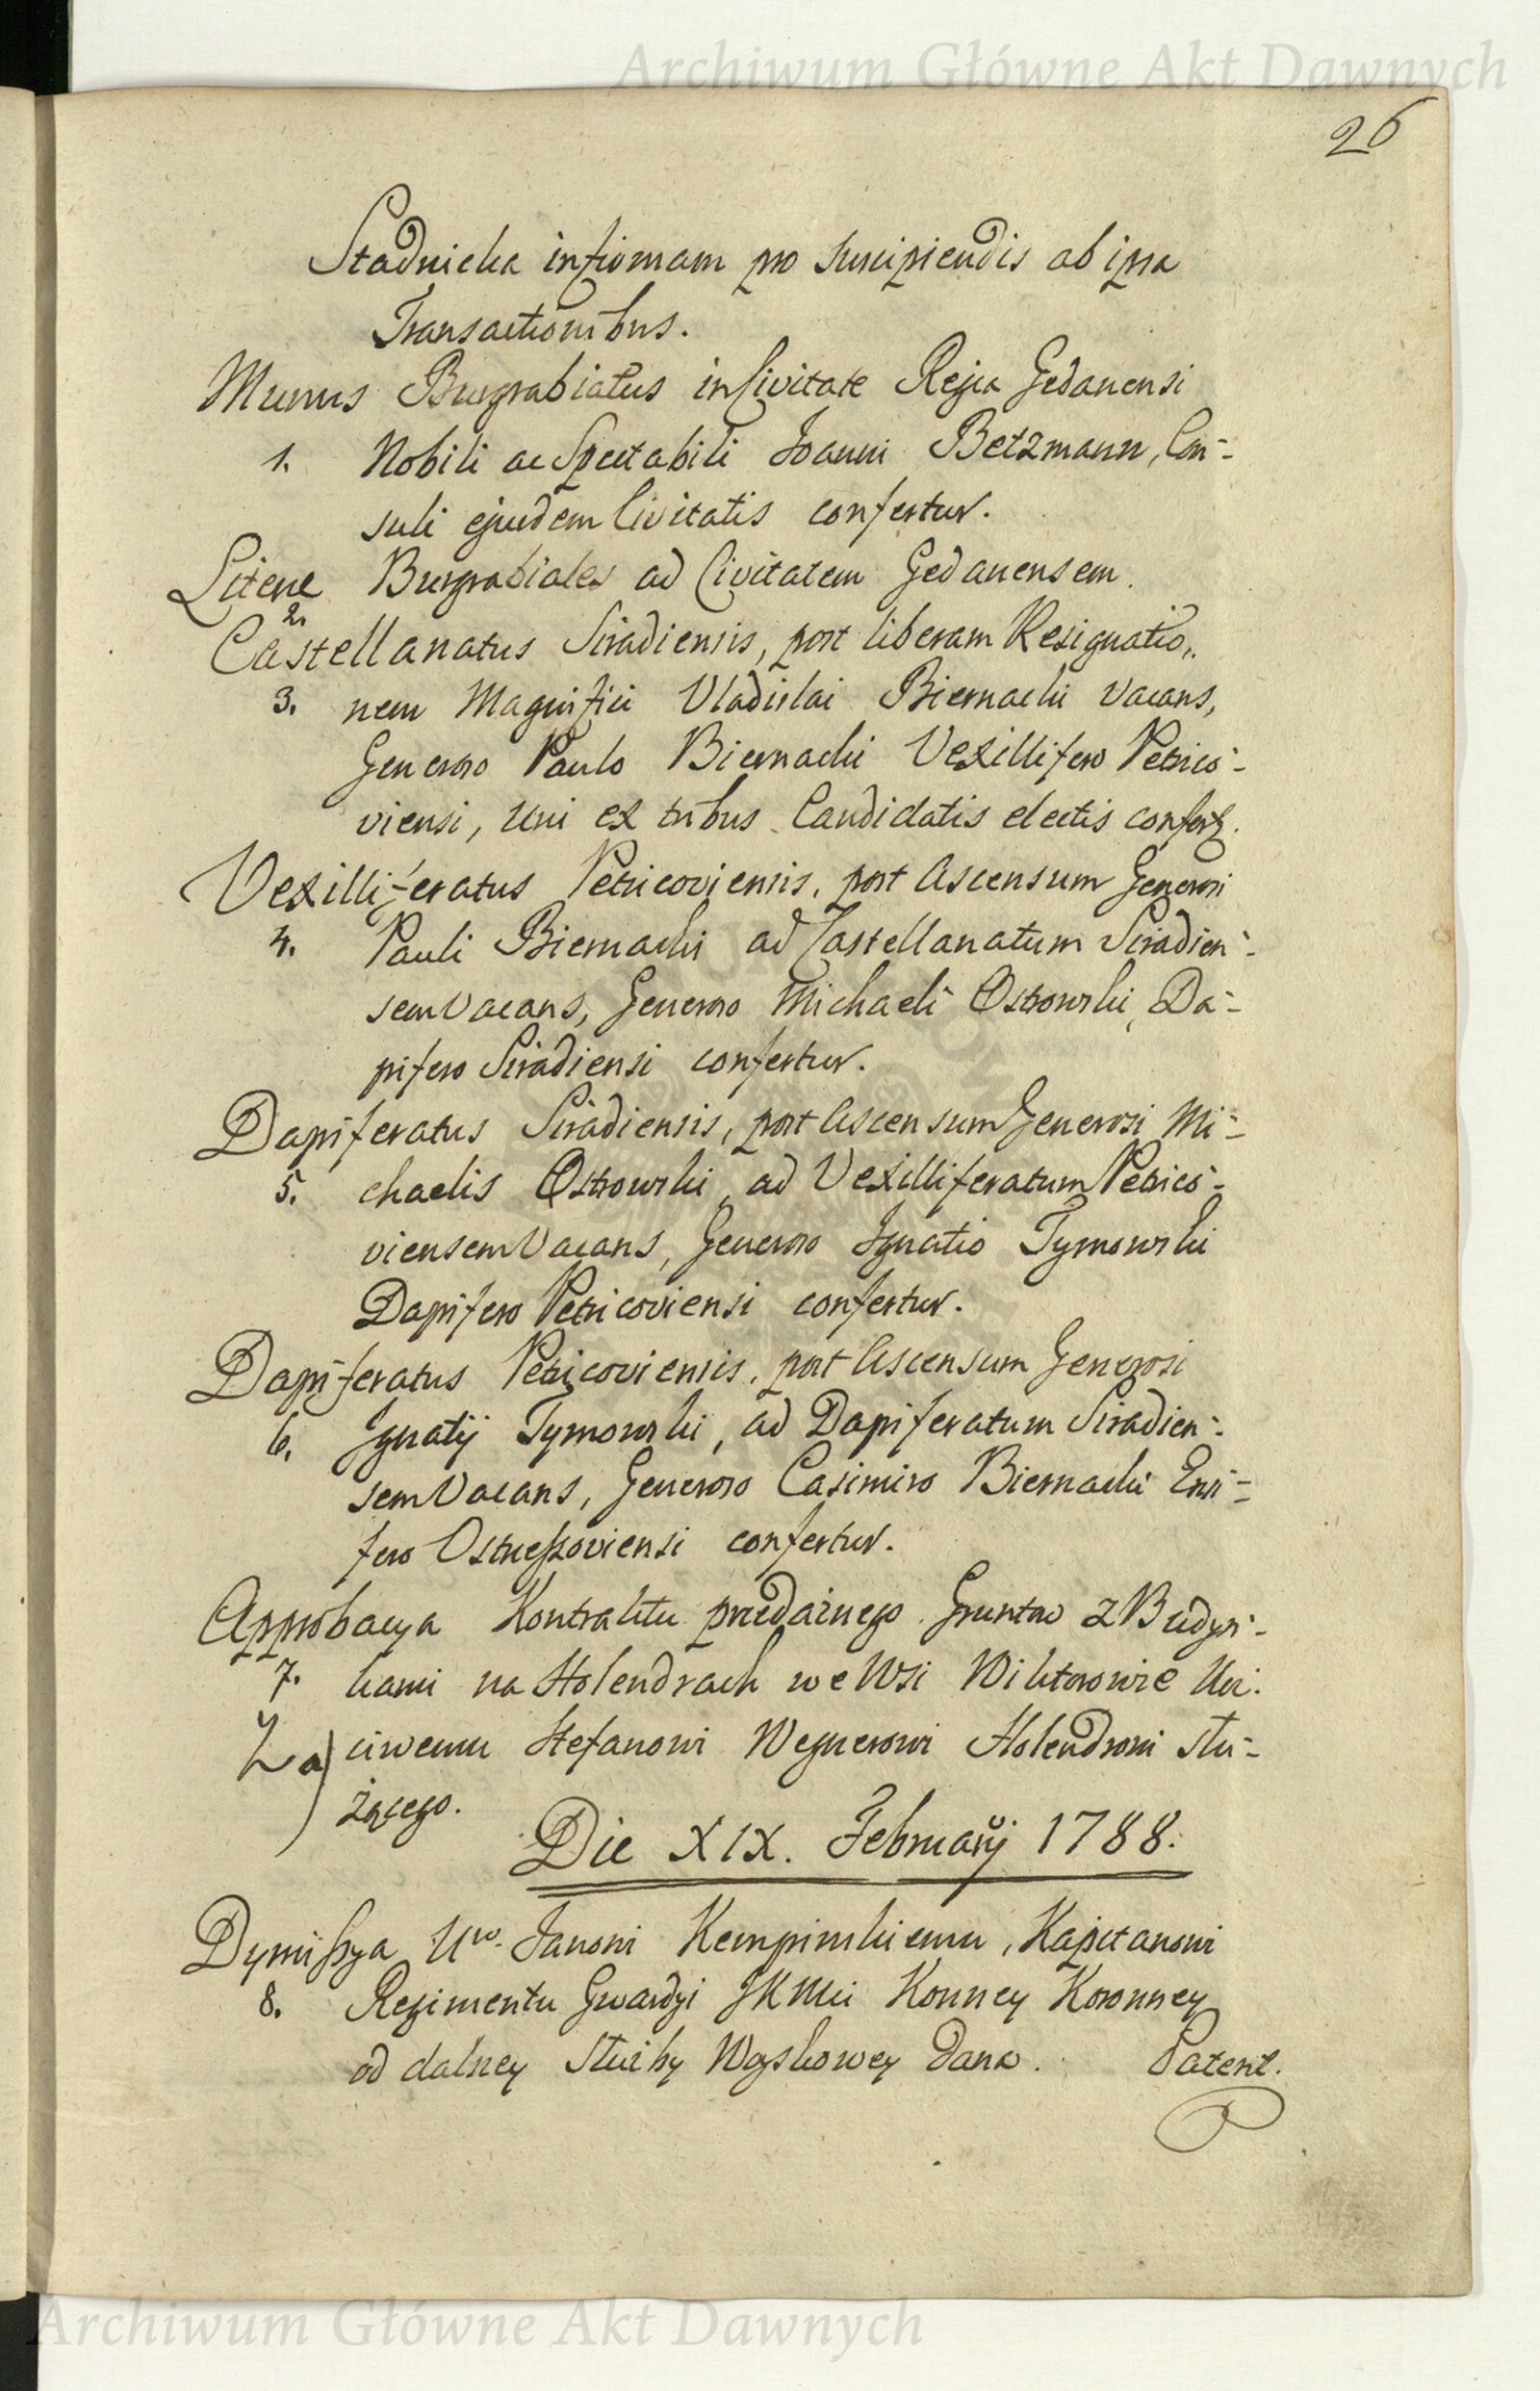 Archiwum Główne Akt Dawnych
26
Stadnicka infirmam pro suscipiendis ab ipsa
Transactionibus.
Munus Burgrabiatus in Civitate Regia Gedanensi
1. Nobili ac Spectabili Joanni Betzmann, Con-
suli ejusdem Civitatis confertur.
Literæ Burgrabiales ad Civitatem Gedanensem.
2.
Castellanatus Siradiensis, post liberam Resignatio„
3. nem Magnifici Vladislai Biernacki vacans,
Generoso Paulo Biernacki Vexillifero Petrico-
viensi, uni ex tribus Candidatis electis confertr.
Vexilliferatus Petricoviensis, post Ascensum Generosi
4. Pauli Biernacki ad Castellanatum Siradien-
sem Vacans, Generoso Michaeli Ostrowski, Da-
pifero Siradiensi confertur.
Dapiferatus Siradiensis, post Ascensum Generosi Mi-
5. chaelis Ostrowski, ad Vexilliferatum Petrico-
viensem Vacans, Generoso Ignatio Tymowski
Dapifero Petricoviensi confertur.
Dapiferatus Petricoviensis, post Ascensum Generosi
6. Ignatij Tymowski, ad Dapiferatum Siradien-
sem Vacans, Generoso Casimiro Biernacki Ensi-
fero Ostrzeszoviensi confertur.
Approbacya Kontraktu przedażnego Gruntow z Budyn-
7. kami na Holendrach we Wsi Wiktorowie Ucz.
a) ciwemu Stefanowi Wegnerowi Holendrowi słu-
żącego.
Die XIX. Februarij 1788.
Dymissya Uro. Janowi Kempinskiemu, Kapitanowi
8. Regimentu Gwardyi JKMci Konney Koronney
od dalszey Służby Woyskowey dana. Patent.
Archiwum Główne Akt Dawnych